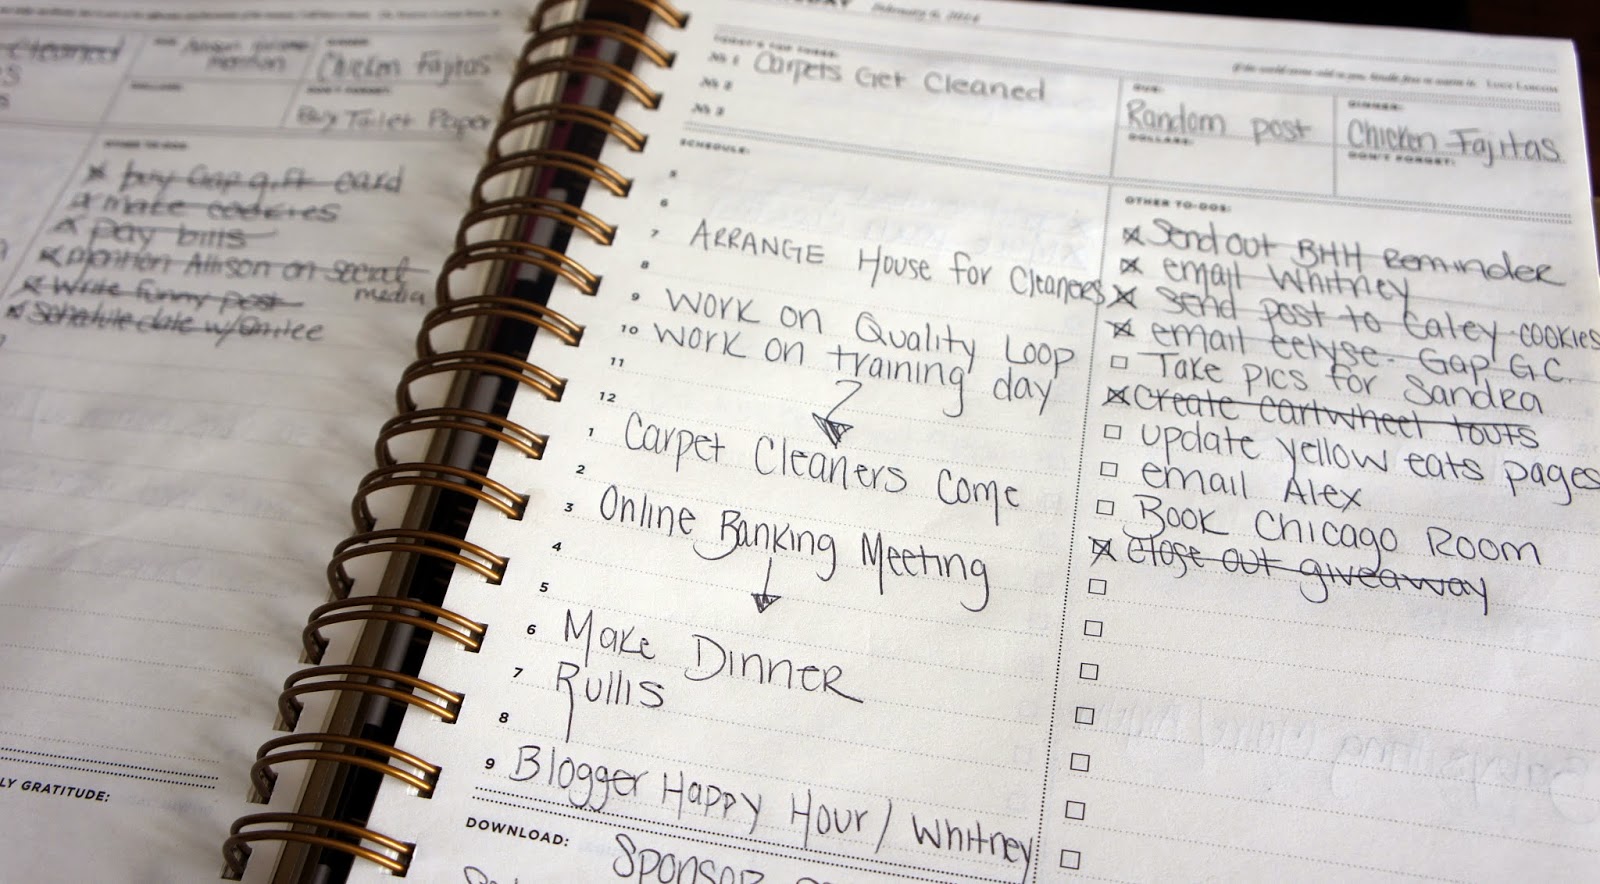 Cleaned
Chicken Fajitas
DON'T FORGET:
Buy Toilet Paper
OTHER TO-DOS:
buy Gap gift card
make cookies
pay bills
mention Allison on social
media
write funny post
Schedule date w/
LY GRATITUDE:
February 6, 2014
TODAY'S TOP THREE:
No 1 Carpets Get Cleaned
No 2
No 3
DUE:
Random post
DOLLARS:
DINNER:
Chicken Fajitas
DON'T FORGET:
SCHEDULE:
5
6
7 ARRANGE House for Cleaners
8
9 WORK on Quality Loop
10 WORK on training day
11
12
1 Carpet Cleaners Come
2
3 Online Banking Meeting
4
5
6 Make Dinner
7 Rullis
8
9 Blogger Happy Hour / Whitney
DOWNLOAD:
Sponsor
OTHER TO-DOS:
Send out BHH Reminder
email Whitney
Send post to Caley-cookies
email eelyse - Gap G.C.
Take pics for Sandra
create cartwheel touts
update yellow eats pages
email Alex
Book Chicago Room
close out giveaway